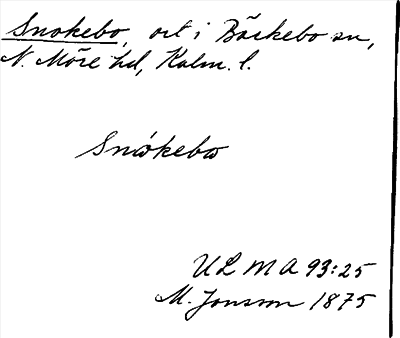 Snokebo, ort i Bäckebo sn,
N. Möre hd, Kalm. l.
Snωkebω
ULMA 93:25
M. Jonsson 1875